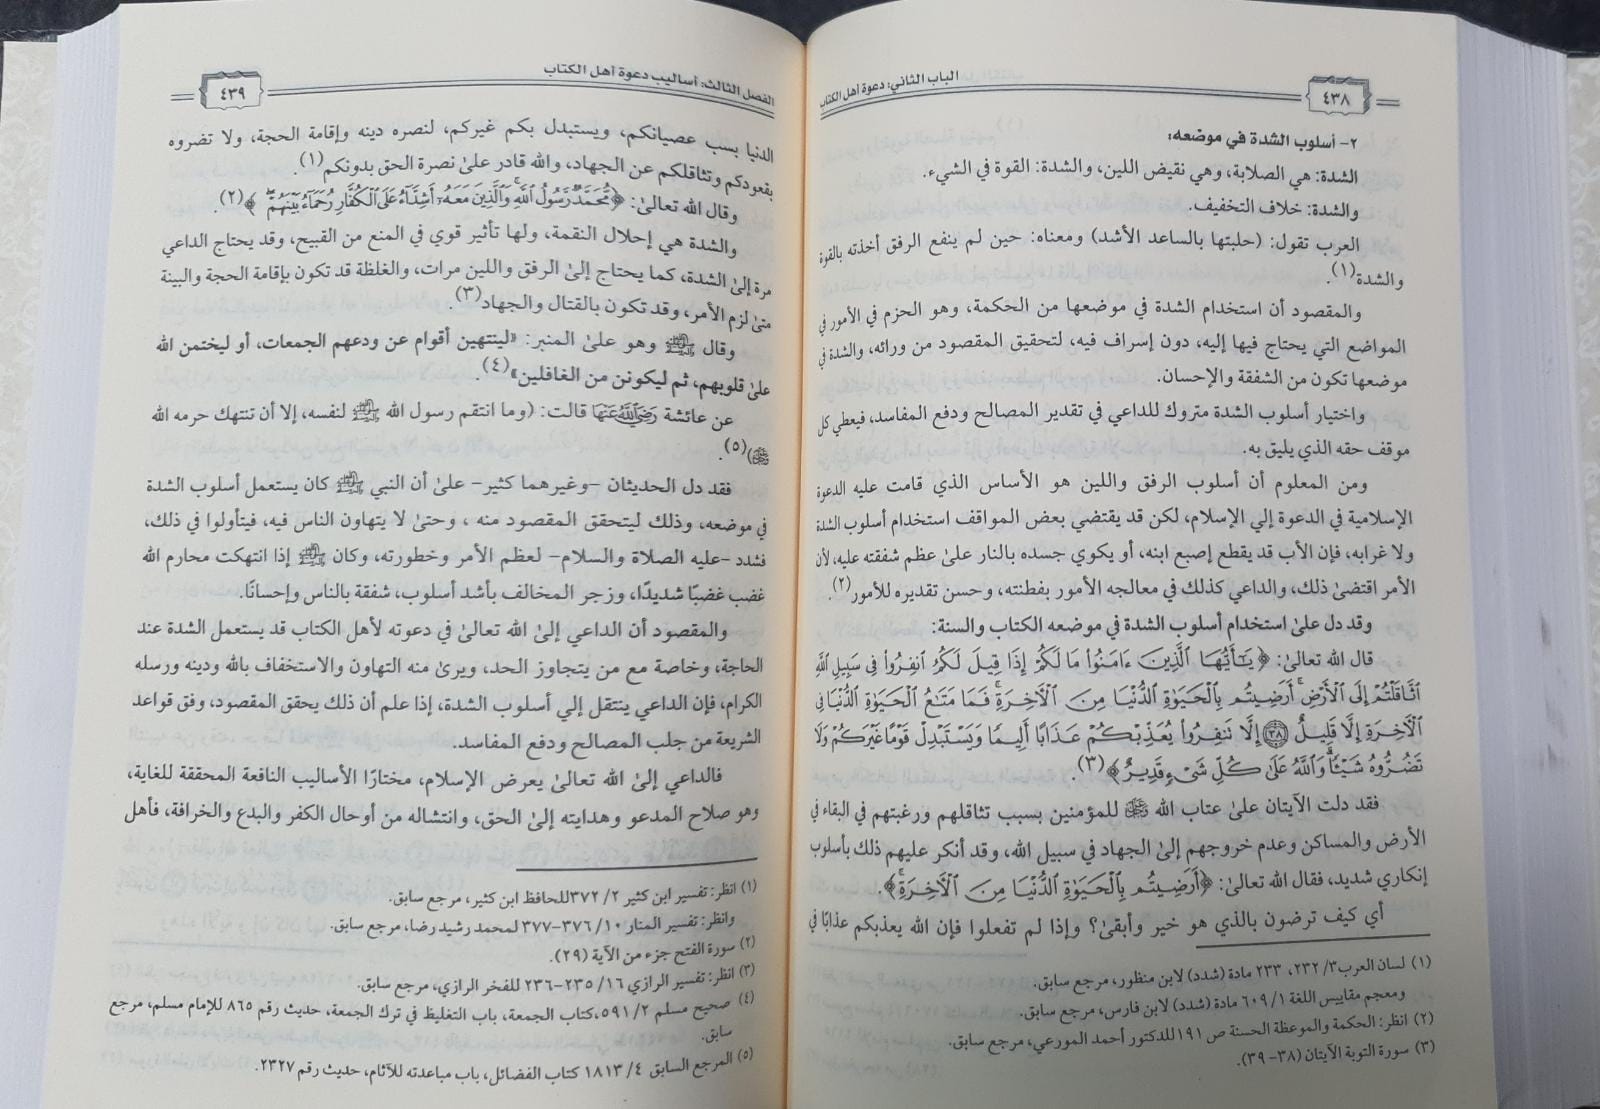 الباب الثاني: دعوة أهل الكتاب
٤٣٨
٢- أسلوب الشدة في موضعه:
الشدة: هي الصلابة، وهي نقيض اللين، والشدة: القوة في الشيء.
والشدة: خلاف التخفيف.
العرب تقول: (حلبتها بالساعد الأشد) ومعناه: حين لم ينفع الرفق أخذته بالقوة
والشدة(١).
والمقصود أن استخدام الشدة في موضعها من الحكمة، وهو الحزم في الأمور في
المواضع التي يحتاج فيها إليه، دون إسراف فيه، لتحقيق المقصود من ورائه، والشدة في
موضعها تكون من الشفقة والإحسان.
واختيار أسلوب الشدة متروك للداعي في تقدير المصالح ودفع المفاسد، فيعطي كل
موقف حقه الذي يليق به.
ومن المعلوم أن أسلوب الرفق واللين هو الأساس الذي قامت عليه الدعوة
الإسلامية في الدعوة إلي الإسلام، لكن قد يقتضي بعض المواقف استخدام أسلوب الشدة
ولا غرابه، فإن الأب قد يقطع إصبع ابنه، أو يكوي جسده بالنار علىٰ عظم شفقته عليه، لأن
الأمر اقتضىٰ ذلك، والداعي كذلك في معالجه الأمور بفطنته، وحسن تقديره للأمور(٢).
وقد دل علىٰ استخدام أسلوب الشدة في موضعه الكتاب والسنة:
قال الله تعالىٰ: ﴿يَٰٓأَيُّهَا ٱلَّذِينَ ءَامَنُواْ مَا لَكُمۡ إِذَا قِيلَ لَكُمُ ٱنفِرُواْ فِي سَبِيلِ ٱللَّهِ
ٱثَّاقَلۡتُمۡ إِلَى ٱلۡأَرۡضِۚ أَرَضِيتُم بِٱلۡحَيَوٰةِ ٱلدُّنۡيَا مِنَ ٱلۡأٓخِرَةِۚ فَمَا مَتَٰعُ ٱلۡحَيَوٰةِ ٱلدُّنۡيَا فِي
ٱلۡأٓخِرَةِ إِلَّا قَلِيلٌ ٣٨ إِلَّا تَنفِرُواْ يُعَذِّبۡكُمۡ عَذَابًا أَلِيمٗا وَيَسۡتَبۡدِلۡ قَوۡمًا غَيۡرَكُمۡ وَلَا
تَضُرُّوهُ شَيۡـٔٗاۗ وَٱللَّهُ عَلَىٰ كُلِّ شَيۡءٖ قَدِيرٌ﴾(٣).
فقد دلت الآيتان علىٰ عتاب الله ﷿ للمؤمنين بسبب تثاقلهم ورغبتهم في البقاء في
الأرض والمساكن وعدم خروجهم إلىٰ الجهاد في سبيل الله، وقد أنكر عليهم ذلك بأسلوب
إنكاري شديد، فقال الله تعالىٰ: ﴿أَرَضِيتُم بِٱلۡحَيَوٰةِ ٱلدُّنۡيَا مِنَ ٱلۡأٓخِرَةِۚ﴾.
أي كيف ترضون بالذي هو خير وأبقىٰ؟ وإذا لم تفعلوا فإن الله يعذبكم عذابًا في
(١) لسان العرب٣/ ٢٣٢، ٢٣٣ مادة (شدد) لابن منظور، مرجع سابق.
ومعجم مقاييس اللغة ١/ ٦٠٩ مادة (شدد) لابن فارس، مرجع سابق.
(٢) انظر: الحكمة والموعظة الحسنة ص ١٩١ للدكتور أحمد المورعي، مرجع سابق.
(٣) سورة التوبة الآيتان (٣٨- ٣٩).
الفصل الثالث: أساليب دعوة أهل الكتاب
٤٣٩
الدنيا بسب عصيانكم، ويستبدل بكم غيركم، لنصره دينه وإقامة الحجة، ولا تضروه
بقعودكم وتثاقلكم عن الجهاد، والله قادر علىٰ نصرة الحق بدونكم(١).
وقال الله تعالىٰ: ﴿مُّحَمَّدٞ رَّسُولُ ٱللَّهِۚ وَٱلَّذِينَ مَعَهُۥٓ أَشِدَّآءُ عَلَى ٱلۡكُفَّارِ رُحَمَآءُ بَيۡنَهُمۡۖ﴾(٢).
والشدة هي إحلال النقمة، ولها تأثير قوي في المنع من القبيح، وقد يحتاج الداعي
مرة إلىٰ الشدة، كما يحتاج إلىٰ الرفق واللين مرات، والغلظة قد تكون بإقامة الحجة والبينة
متىٰ لزم الأمر، وقد تكون بالقتال والجهاد(٣).
وقال ﷺ وهو علىٰ المنبر: «لينتهين أقوام عن ودعهم الجمعات، أو ليختمن الله
علىٰ قلوبهم، ثم ليكونن من الغافلين»(٤).
عن عائشة رَضِيَ اللَّهُ عَنْهَا قالت: (وما انتقم رسول الله ﷺ لنفسه، إلا أن تنتهك حرمه الله
﷿)(٥).
فقد دل الحديثان -وغيرهما كثير- علىٰ أن النبي ﷺ كان يستعمل أسلوب الشدة
في موضعه، وذلك ليتحقق المقصود منه ، وحتىٰ لا يتهاون الناس فيه، فيتأولوا في ذلك،
فشدد -عليه الصلاة والسلام- لعظم الأمر وخطورته، وكان ﷺ إذا انتهكت محارم الله
غضب غضبًا شديدًا، وزجر المخالف بأشد أسلوب، شفقة بالناس وإحسانًا.
والمقصود أن الداعي إلىٰ الله تعالىٰ في دعوته لأهل الكتاب قد يستعمل الشدة عند
الحاجة، وخاصة مع من يتجاوز الحد، ويرىٰ منه التهاون والاستخفاف بالله ودينه ورسله
الكرام، فإن الداعي ينتقل إلي أسلوب الشدة، إذا علم أن ذلك يحقق المقصود، وفق قواعد
الشريعة من جلب المصالح ودفع المفاسد.
فالداعي إلىٰ الله تعالىٰ يعرض الإسلام، مختارًا الأساليب النافعة المحققة للغاية،
وهو صلاح المدعو وهدايته إلىٰ الحق، وانتشاله من أوحال الكفر والبدع والخرافة، فأهل
(١) انظر: تفسير ابن كثير ٢/ ٣٧٢للحافظ ابن كثير، مرجع سابق.
وانظر: تفسير المنار ١٠/ ٣٧٦-٣٧٧ لمحمد رشيد رضا، مرجع سابق.
(٢) سورة الفتح جزء من الآية (٢٩).
(٣) انظر: تفسير الرازي ١٦/ ٢٣٥-٢٣٦ للفخر الرازي، مرجع سابق.
(٤) صحيح مسلم ٢/ ٥٩١،كتاب الجمعة، باب التغليظ في ترك الجمعة، حديث رقم ٨٦٥ للإمام مسلم، مرجع
سابق.
(٥) المرجع السابق ٤/ ١٨١٣ كتاب الفضائل، باب مباعدته للآثام، حديث رقم ٢٣٢٧.